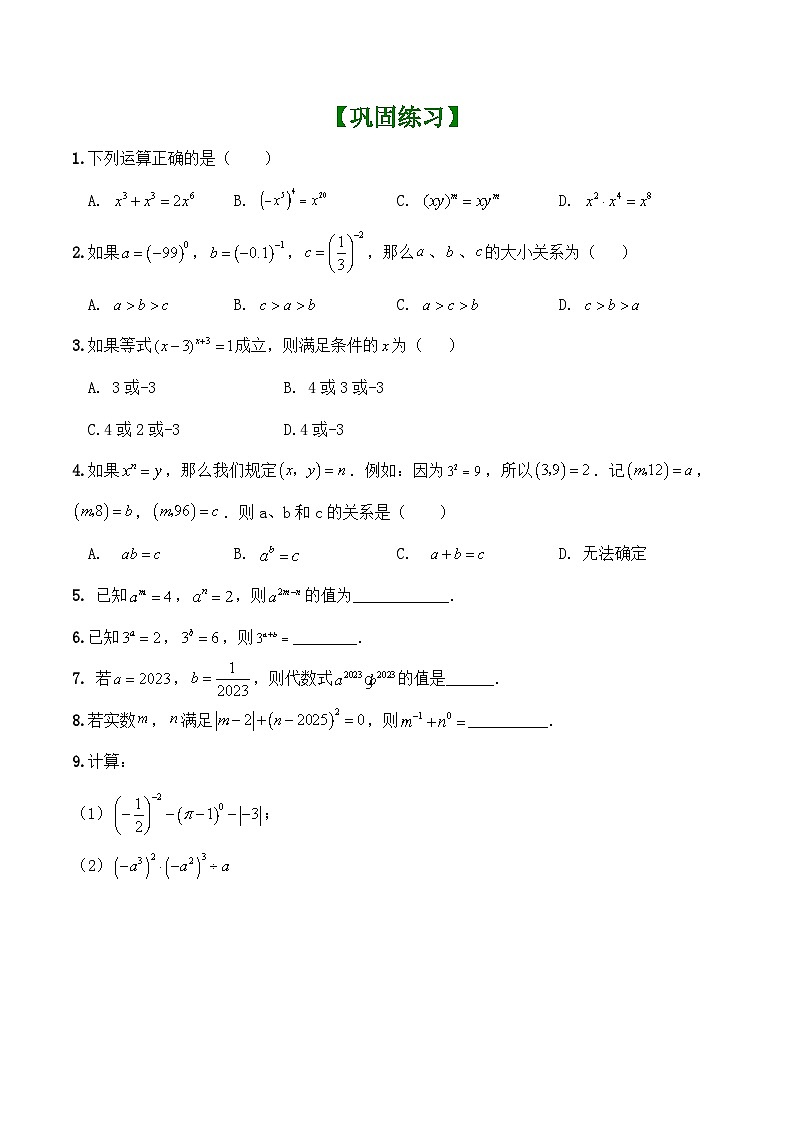 【巩固练习】
1.下列运算正确的是（ ）
A. x³+x³=2x⁶ B. (-x⁵)⁴=x²⁰ C. (xy)ᵐ=xyᵐ D. x²·x⁴=x⁸
2.如果a=(-99)⁰，b=(-0.1)⁻¹，c=(1/3)⁻²，那么a、b、c的大小关系为（ ）
A. a>b>c B. c>a>b C. a>c>b D. c>b>a
3.如果等式(x-3)ˣ⁺³=1成立，则满足条件的x为（ ）
A. 3或-3 B. 4或3或-3
C.4或2或-3 D.4或-3
4.如果xⁿ=y，那么我们规定(x，y)=n.例如：因为3²=9，所以(3,9)=2.记(m,12)=a，
(m,8)=b，(m,96)=c.则a、b和c的关系是（ ）
A. ab=c B. aᵇ=c C. a+b=c D. 无法确定
5. 已知aᵐ=4，aⁿ=2，则a²ᵐ⁻ⁿ的值为____________.
6.已知3ᵃ=2，3ᵇ=6，则3ᵃ⁺ᵇ=________.
7. 若a=2023，b=1/2023，则代数式a²⁰²³gb²⁰²³的值是______.
8.若实数m，n满足|m-2|+(n-2025)²=0，则m⁻¹+n⁰=__________.
9.计算：
（1）(-1/2)⁻²-(π-1)⁰-|-3|;
（2）(-a³)²·(-a²)³÷a